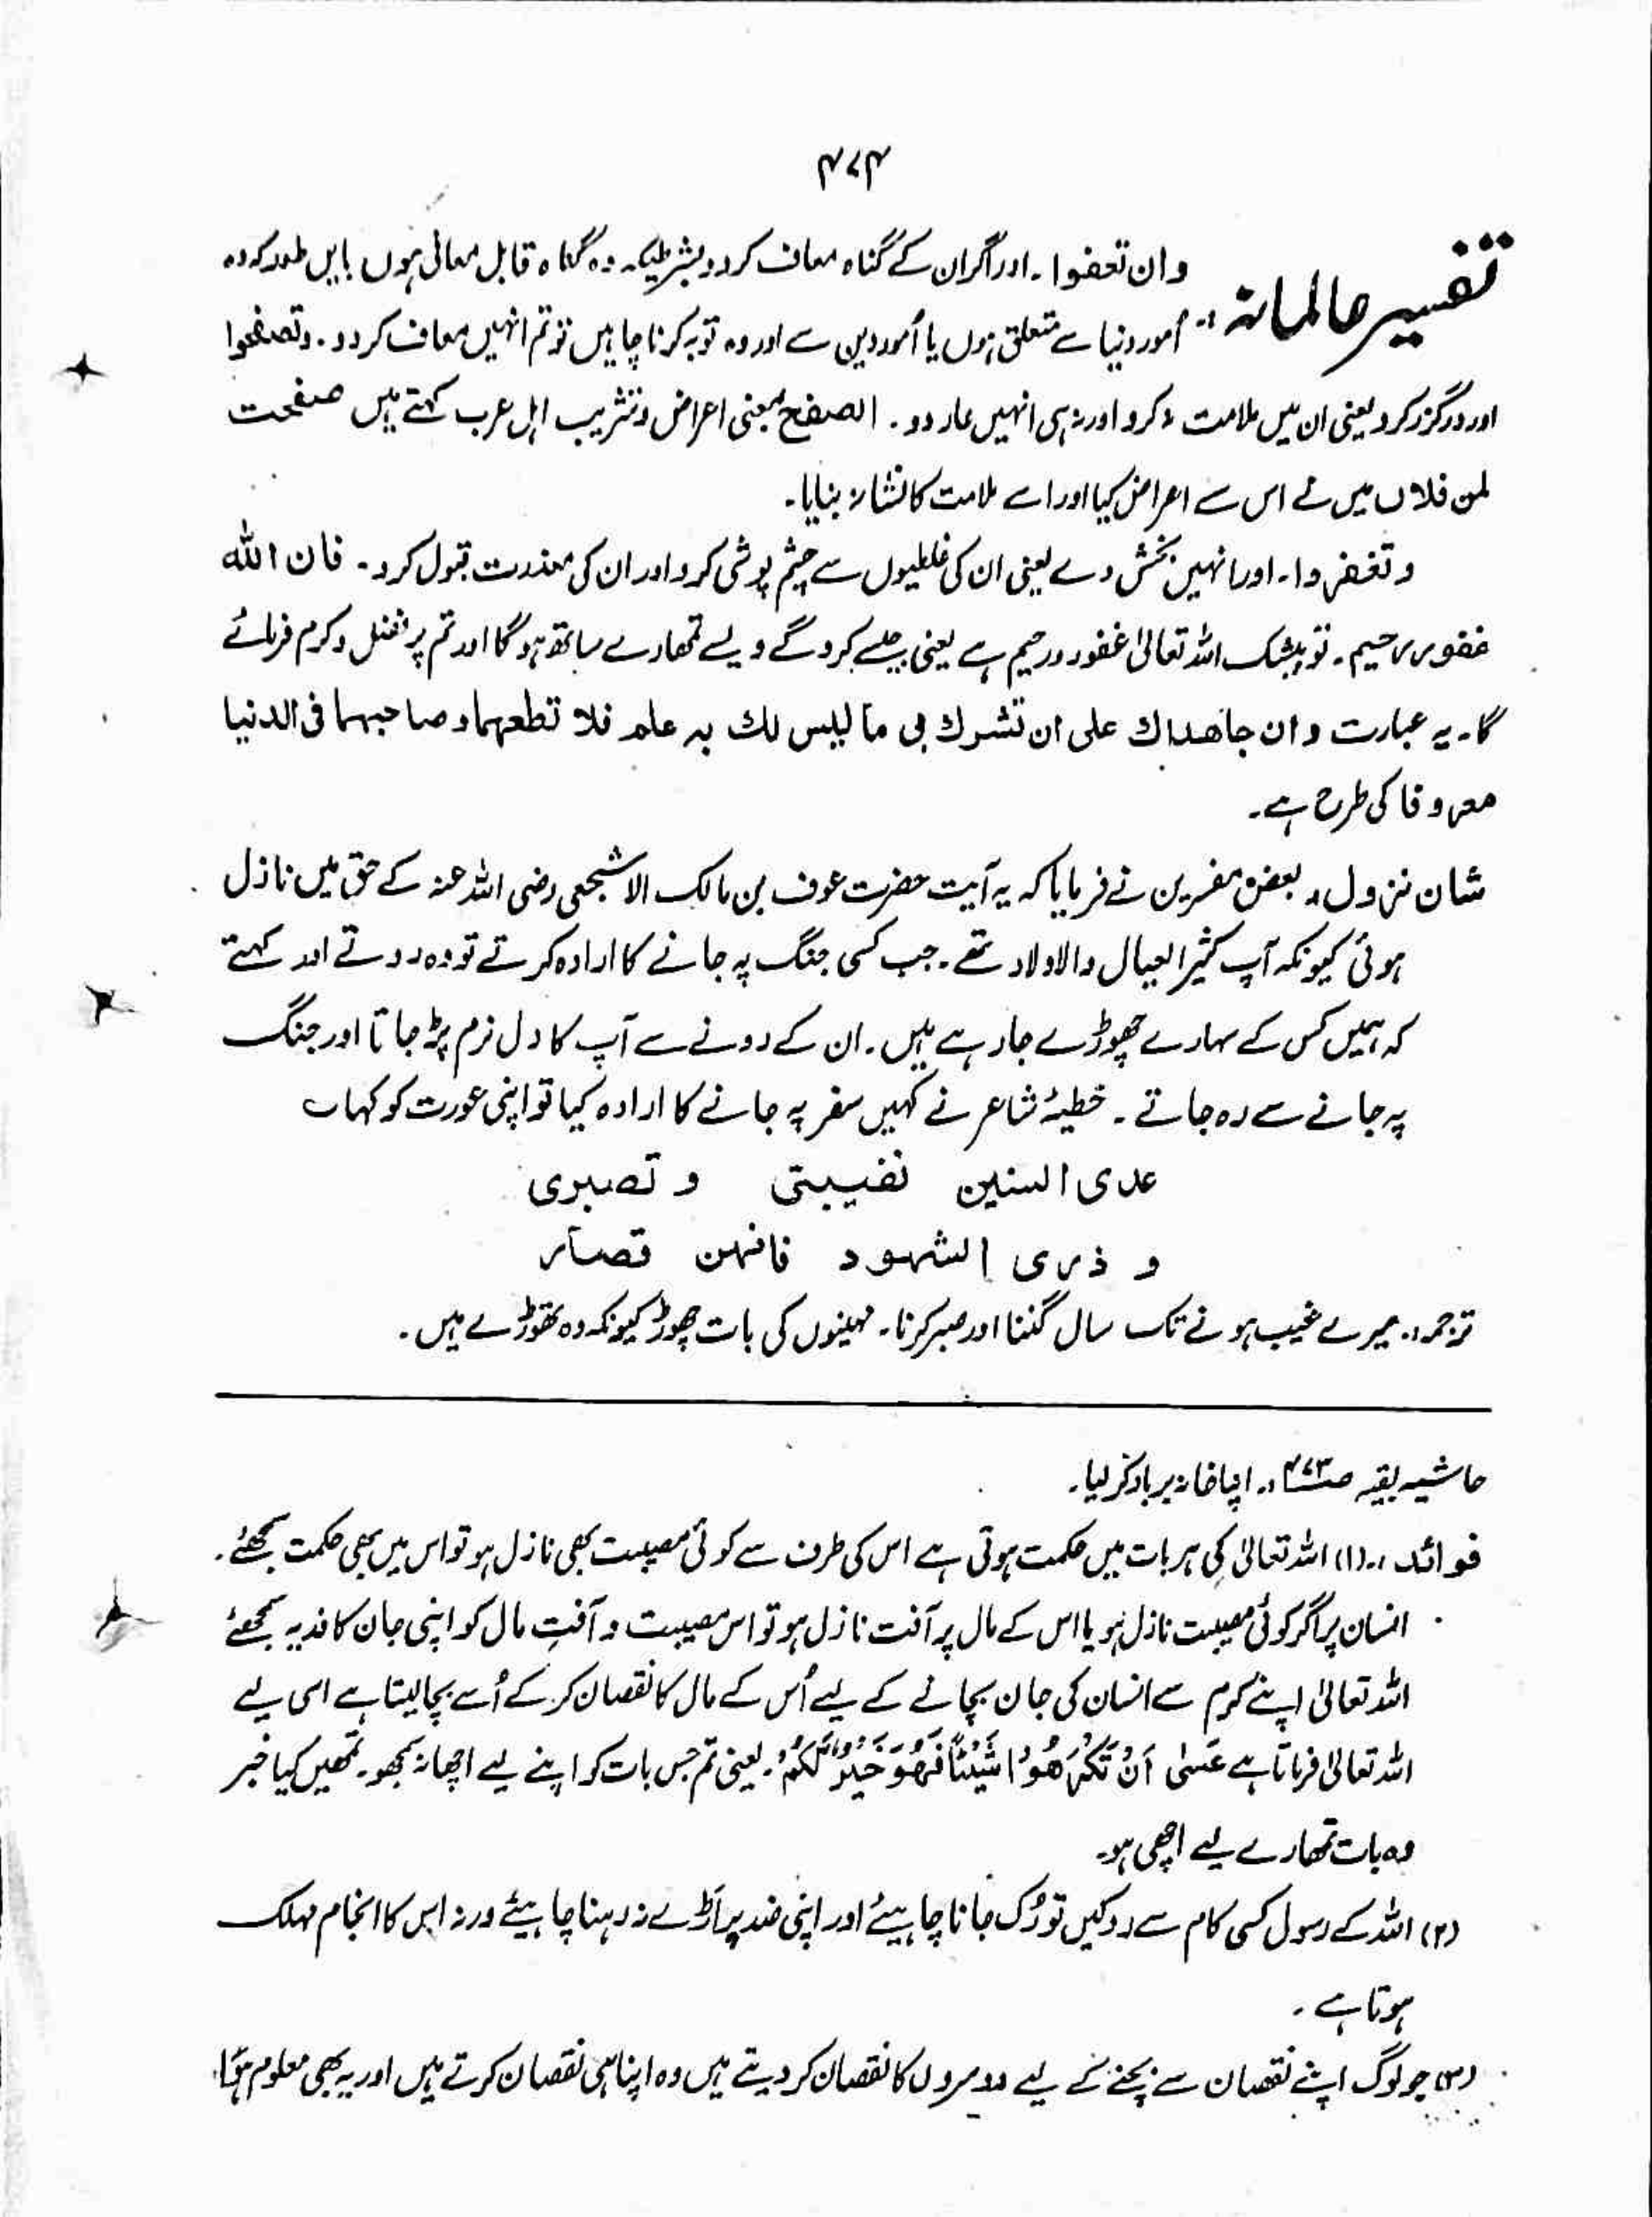 ۴۷۴
تفسیر عالمانہ :۔ وان تعفوا ۔ اور اگر ان کے گناہ معاف کردو بشرطیکہ وہ گناہ قابل معافی ہوں بایں طور کہ وہ
امور دنیا سے متعلق ہوں یا اُمور دین سے اور وہ توبہ کرنا چاہیں تو تم انہیں معاف کر دو ۔ وتصفحوا
اور درگزر کرو یعنی ان میں ملامت نہ کرو اور نہ ہی انہیں عار دو ۔ الصفح بمعنی اعراض و تثریب اہل عرب کہتے ہیں صفحت
لمن فلاں میں نے اس سے اعراض کیا اور اسے ملامت کا نشانہ بنایا۔
و تغفروا۔ اور انہیں بخش دے یعنی ان کی غلطیوں سے چشم پوشی کرو اور ان کی معذرت قبول کرو ۔ فان اللہ
غفور رحیم ۔ تو بیشک اللہ تعالیٰ غفور و رحیم ہے یعنی جیسے کرو گے ویسے تمہارے ساتھ ہوگا اور تم پر فضل و کرم فرمائے
گا ۔ یہ عبارت وان جاھداك على ان تشرك بی ما لیس لك بہ علم فلا تطعہما و صاحبہما فی الدنیا
معروفا کی طرح ہے۔
شان نزول :۔ بعض مفسرین نے فرمایا کہ یہ آیت حضرت عوف بن مالک الاشجعی رضی اللہ عنہ کے حق میں نازل
ہوئی کیونکہ آپ کثیر العیال والاولاد تھے ۔ جب کسی جنگ پہ جانے کا ارادہ کرتے تو وہ روتے اور کہتے
کہ ہمیں کس کے سہارے چھوڑے جارہے ہیں ۔ ان کے رونے سے آپ کا دل نرم پڑ جاتا اور جنگ
پہ جانے سے رہ جاتے ۔ خطیۂ شاعر نے کہیں سفر پہ جانے کا ارادہ کیا تو اپنی عورت کو کہا ؎
عدی السنین نغیبتی و تصبری
و ذری الشہود فانہن قصار
ترجمہ :۔ میرے غیب ہونے تک سال گننا اور صبر کرنا ۔ مہینوں کی بات چھوڑ کیونکہ وہ تھوڑے ہیں ۔
حاشیہ بقیہ صـ۴۷۳ :۔ اپنا خانہ برباد کر لیا ۔
فوائد :۔ (۱) اللہ تعالیٰ کی ہر بات میں حکمت ہوتی ہے اس کی طرف سے کوئی مصیبت بھی نازل ہو تو اس میں بھی حکمت سمجھئے ۔
انسان پر اگر کوئی مصیبت نازل ہو یا اس کے مال پر آفت نازل ہو تو اس مصیبت و آفتِ مال کو اپنی جان کا فدیہ سمجھئے
اللہ تعالیٰ اپنے کرم سے انسان کی جان بچانے کے لیے اُس کے مال کا نقصان کر کے اُسے بچا لیتا ہے اسی لیے
اللہ تعالیٰ فرماتا ہے عَسٰی اَنْ تَکْرَھُوْا شَیْئًا فَھُوَ خَیْرٌ لَّکُمْ ۔ یعنی تم جس بات کو اپنے لیے اچھا نہ سمجھو ۔ تمھیں کیا خبر
وہ بات تمھارے لیے اچھی ہو۔
(۲) اللہ کے رسول کسی کام سے روکیں تو رُک جانا چاہیئے اور اپنی ضد پر اَڑے نہ رہنا چاہیئے ورنہ اس کا انجام مہلک
ہوتا ہے ۔
(۳) جو لوگ اپنے نقصان سے بچنے کے لیے دوسروں کا نقصان کر دیتے ہیں وہ اپنا ہی نقصان کرتے ہیں اور یہ بھی معلوم ہوًا